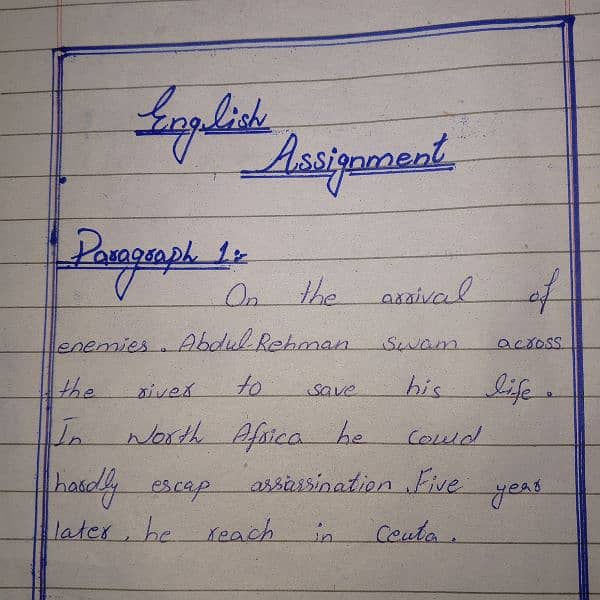 English
Assignment
Paragraph 1:-
On the arrival of
enemies. Abdul Rehman swam across
the river to save his life.
In North Africa he could
hardly escap assiassination. Five year
later, he reach in Ceuta.